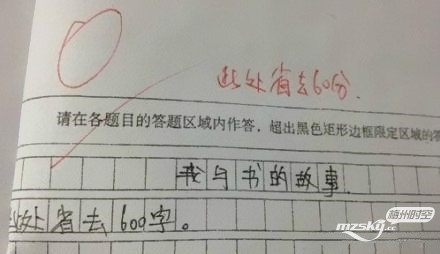 此处省去60分.
请在各题目的答题区域内作答,超出黑色矩形边框限定区域的答
我与书的故事.
此处省去600字。
梅州时空
mzsky.cc